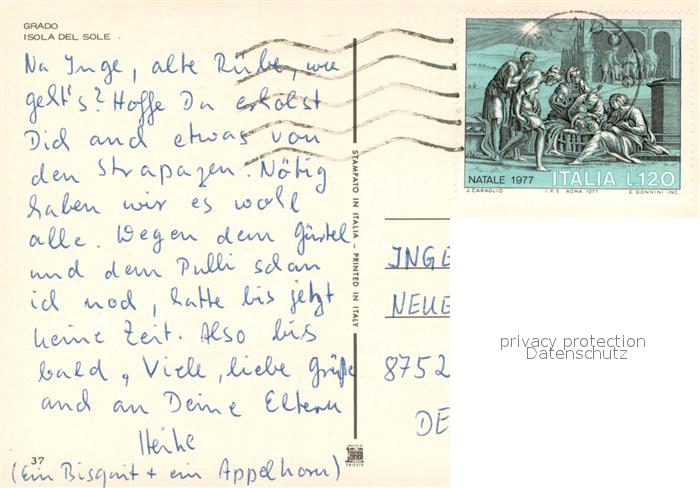 GRADO
ISOLA DEL SOLE
Na Inge, alte Rübe, wie
geht's? Hoffe Du erholst
Dich auch etwas von
den Strapazen. Nötig
haben wir es wohl
alle. Wegen dem Gürtel
und dem Pulli schau
ich noch, hatte bis jetzt
keine Zeit. Also bis
bald, Viele, liebe Grüße
auch an Deine Eltern
Heike
37
(Ein Bisquit + ein Appelkorn)
STAMPATO IN ITALIA - PRINTED IN ITALY
TRIESTE
NATALE 1977 ITALIA L.120
J. CARAGLIO I.P.S. ROMA 1977 E. DONNINI INC.
INGE
NEUE
8752
DE
privacy protection
Datenschutz